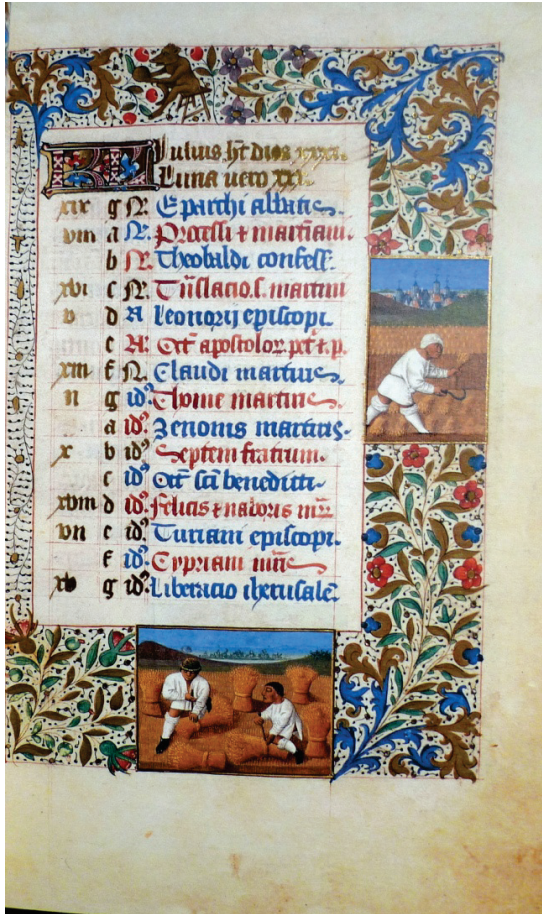 Iulius ht dies xxxi.
Luna uero xxx.
xix g N. Eparchi abbatis.
viii a N. Processi & martiani.
b N. Theobaldi confess.
xvi c N. Tnslacio. s. martini
v d N leonorij episcopi.
e N. Oct apostolor pet & p.
xiii f N. Claudi martiris.
ii g id9 Thome martiris.
a id9 Zenonis martiris.
x b id9 Septem fratrum.
c id9 Oct sci benedicti.
xviii d id9 felicis & naboris
vii e id9 Turiani episcopi.
f id9 Cypriani
xv g id9 Liberacio iherusale